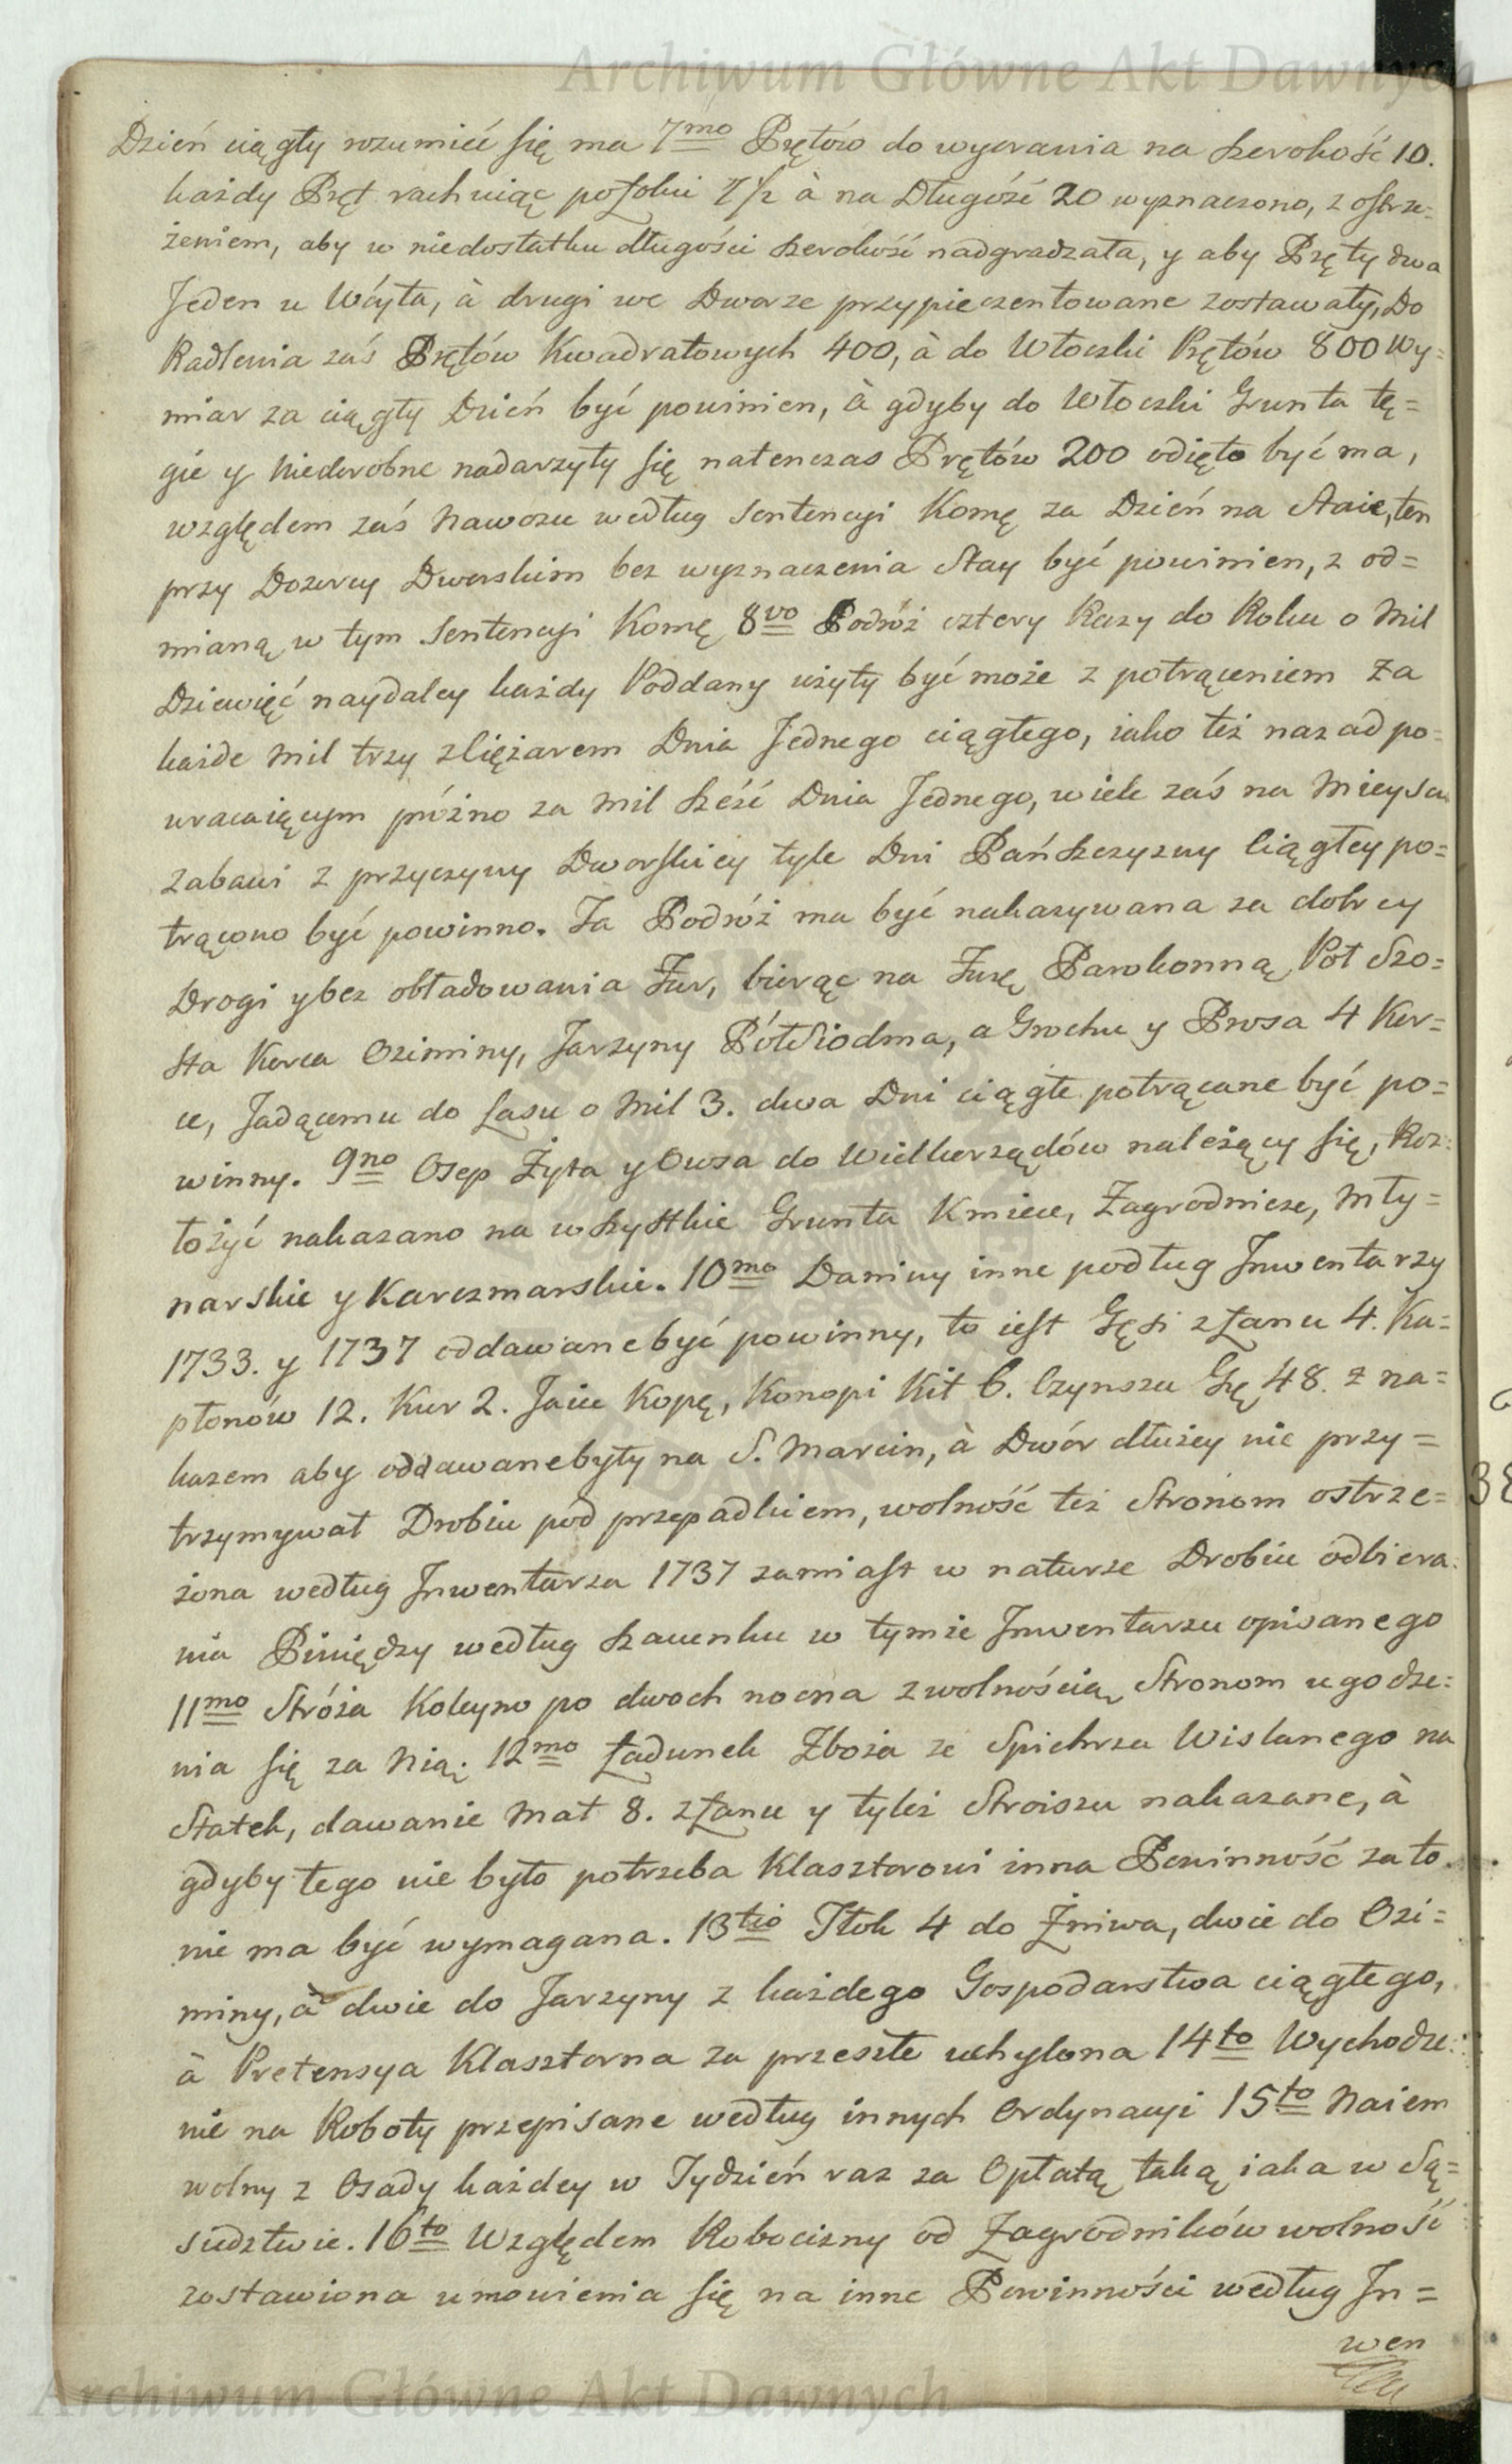 Archiwum Główne Akt Dawnych
Dzień ciągły rozumieć się ma 7mo Prętów do wyorania na szerokość 10.
każdy Pręt rachuiąc po Łokci 7½ à na Długość 20 wyznaczono, z ostrze=
żeniem, aby w niedostatku długości szerokość nadgradzała, y aby Pręty dwa
Jeden u Wóyta, à drugi we Dworze przypieczentowane zostawały, Do
Radlenia zaś Prętów Kwadratowych 400, à do Włoczki Prętów 800 Wy=
miar za ciągły Dzień być powinien, à gdyby do Włoczki Grunta tę=
gie y Niedorobne nadarzyły się natenczas Prętów 200 odięto być ma,
względem zaś Nawozu według Sentencyi Komę za Dzień na Staie, ten
przy Dozorcy Dworskim bez wyznaczenia Stay być powinien, z od=
mianą w tym Sentencyi Komę 8vo Podróż cztery Razy do Roku o Mil
Dziewięć naydaley każdy Poddany użyty być może z potrąceniem za
każde Mil trzy z Ciężarem Dnia Jednego ciągłego, iako też nazad po=
wracaiącym próżno za Mil sześć Dnia Jednego, wiele zaś na Mieyscu
zabawi z przyczyny Dworskiey tyle Dni Pańszczyzny Ciągłey po=
trącono być powinno. Ta Podróż ma być nakazywana za dobrey
Drogi y bez obładowania Fur, biorąc na Furę Parokonną Poł Szo=
sta Korca Oziminy, Jarzyny PółSiodma, a Grochu y Prosa 4 Kor=
ce, Jadącemu do Lasu o Mil 3. dwa Dni ciągłe potrącane być po=
winny. 9no Osep Żyta y Owsa do Wielkorządów należący się, Roz=
łożyć nakazano na wszystkie Grunta Kmiece, Zagrodnicze, Mły=
narskie y Karczmarskie. 10mo Daniny inne podług Inwentarzy
1733. y 1737 oddawane być powinny, to iest Gęsi z Łanu 4. Ka=
płonów 12. Kur 2. Jaiec Kopę, Konopi Kit 6. Czynszu Grę 48. z na=
kazem aby oddawane były na S. Marcin, à Dwór dłużey nie przy=
trzymywał Drobiu pod przepadkiem, wolność też Stronom ostrze=
żona według Inwentarza 1737 zamiast w naturze Drobiu odbiera=
nia Pieniędzy według szacunku w tymże Inwentarzu opisanego
11mo Stróża Koleyno po dwoch nocna z wolnością Stronom ugodze=
nia się za Nią. 12mo Ładunek Zboża ze Spichrza Wislanego na
Statek, dawanie Mat 8. z Łanu y tyleż Stroiszu nakazane, à
gdyby tego nie było potrzeba Klasztorowi inna Powinność za to
nie ma być wymagana. 13tio Tłok 4 do Żniwa, dwie do Ozi=
miny, à dwie do Jarzyny z każdego Gospodarstwa ciągłego,
à Pretensya Klasztorna za przeszłe uchylona 14to Wychodze=
nie na Roboty przepisane według innych Ordynacyi 15to Naiem
wolny z Osady każdey w Tydzień raz za Opłatą taką iaka w Są=
siedztwie. 16to Względem Robocizny od Zagrodników wolność
zostawiona umowienia się na inne Powinności według In=
wen
Archiwum Główne Akt Dawnych